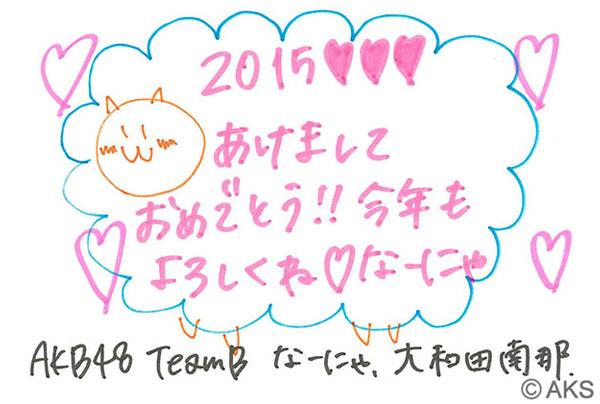 2015♥♥♥
あけまして
おめでとう!!今年も
よろしくね♡なーにゃ
AKB48 TeamB なーにゃ、大和田南那.
© AKS